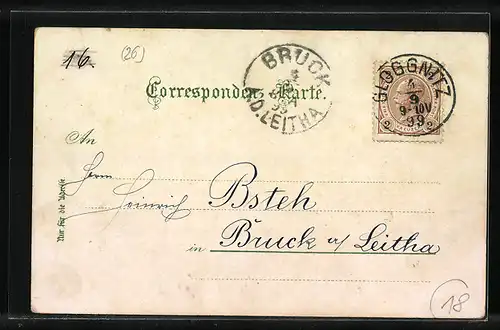 16.
(26)
BRUCK
A.D. LEITHA
GLOGGNITZ
4/9
99
Correspondenz-Karte.
An
Herrn
Heinrich Bsteh
in Bruck a/ Leitha
Nur für die Adresse
18